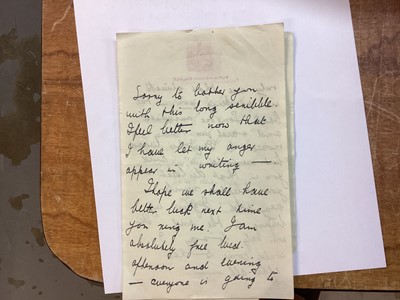 Sorry to bother you
with this long scribble.
I feel better now that
I have let my anger
appear in writing —
I hope we shall have
better luck next time
you ring me. I am
absolutely free Wed.
afternoon and evening
— everyone is going to